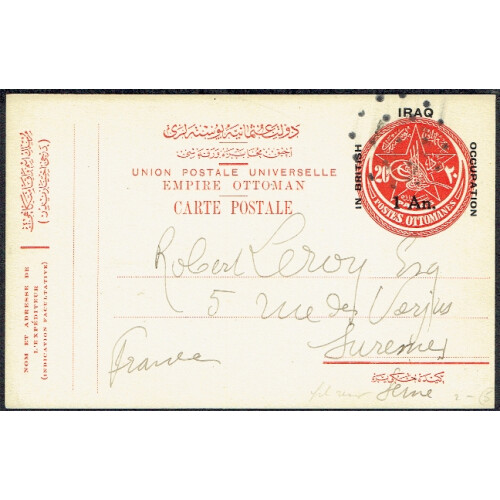 IRAQ
IN BRITISH
OCCUPATION
1 An.
20
٢٠
POSTES OTTOMANES
دولت عثمانیه پوسته‌لری
UNION POSTALE UNIVERSELLE
EMPIRE OTTOMAN
CARTE POSTALE
NOM ET ADRESSE DE
L'EXPÉDITEUR
(INDICATION FACULTATIVE)
Robert Leroy Esq
5 rue des Verjus
Suresnes
France
Seine